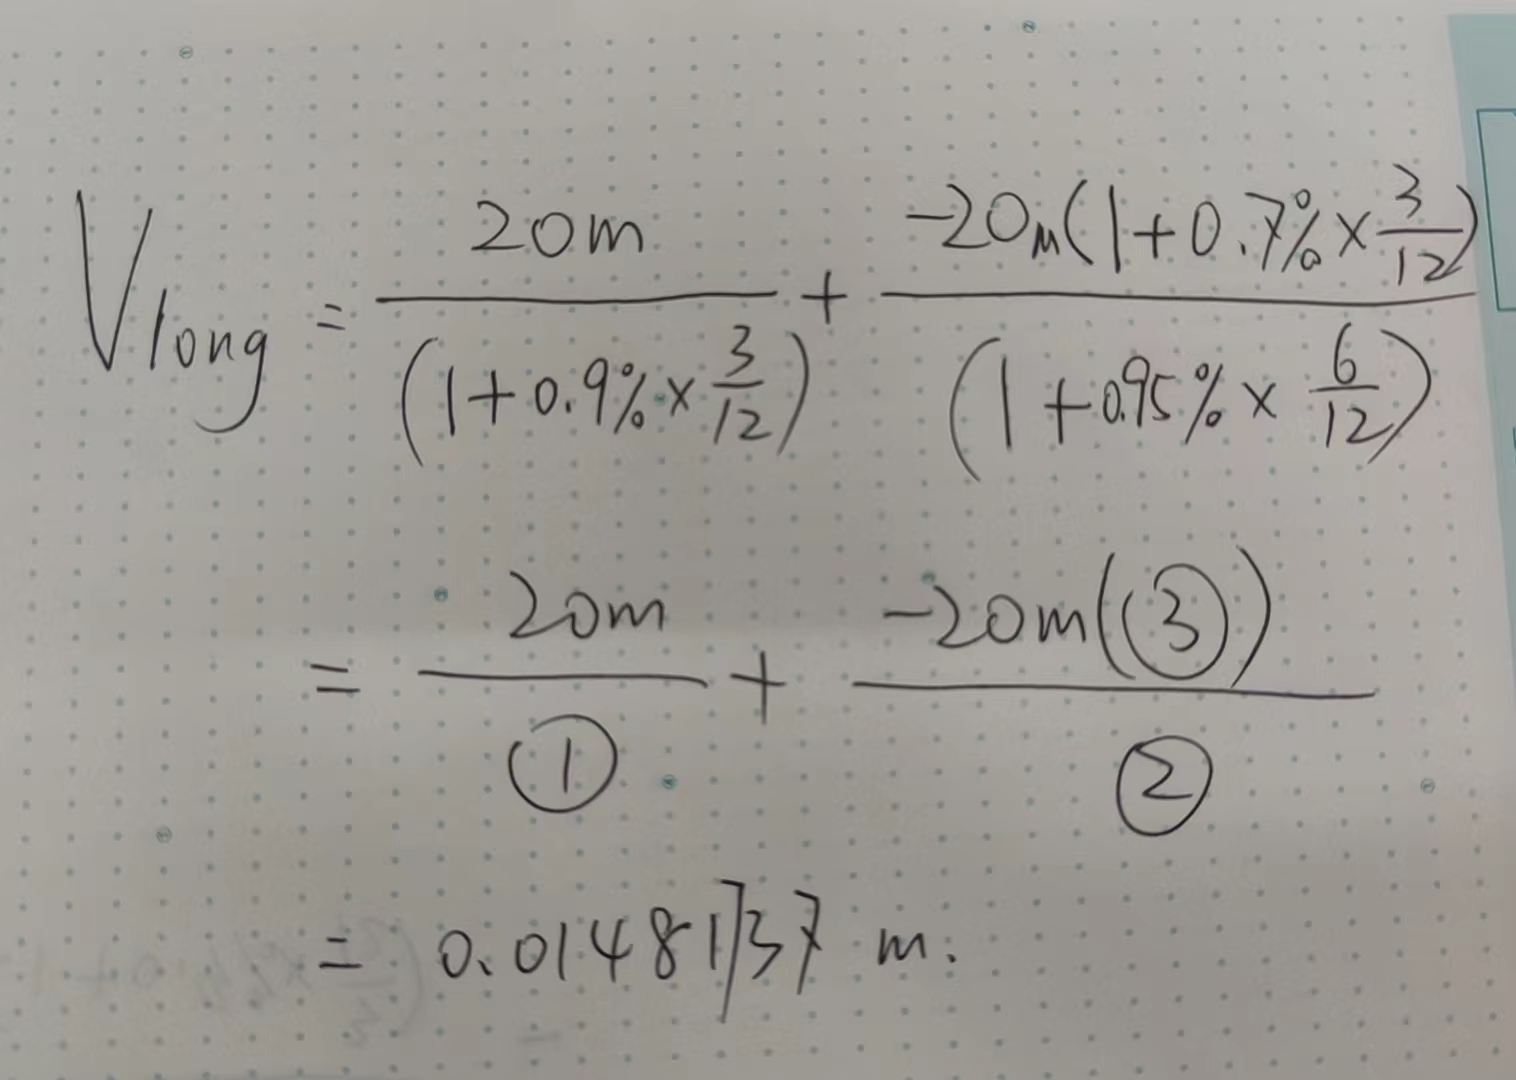 V long = 20m / (1+0.9%×3/12) + -20m(1+0.7%×3/12) / (1+0.95%×6/12)
= 20m / ① + -20m(③) / ②
= 0.01481737 m.